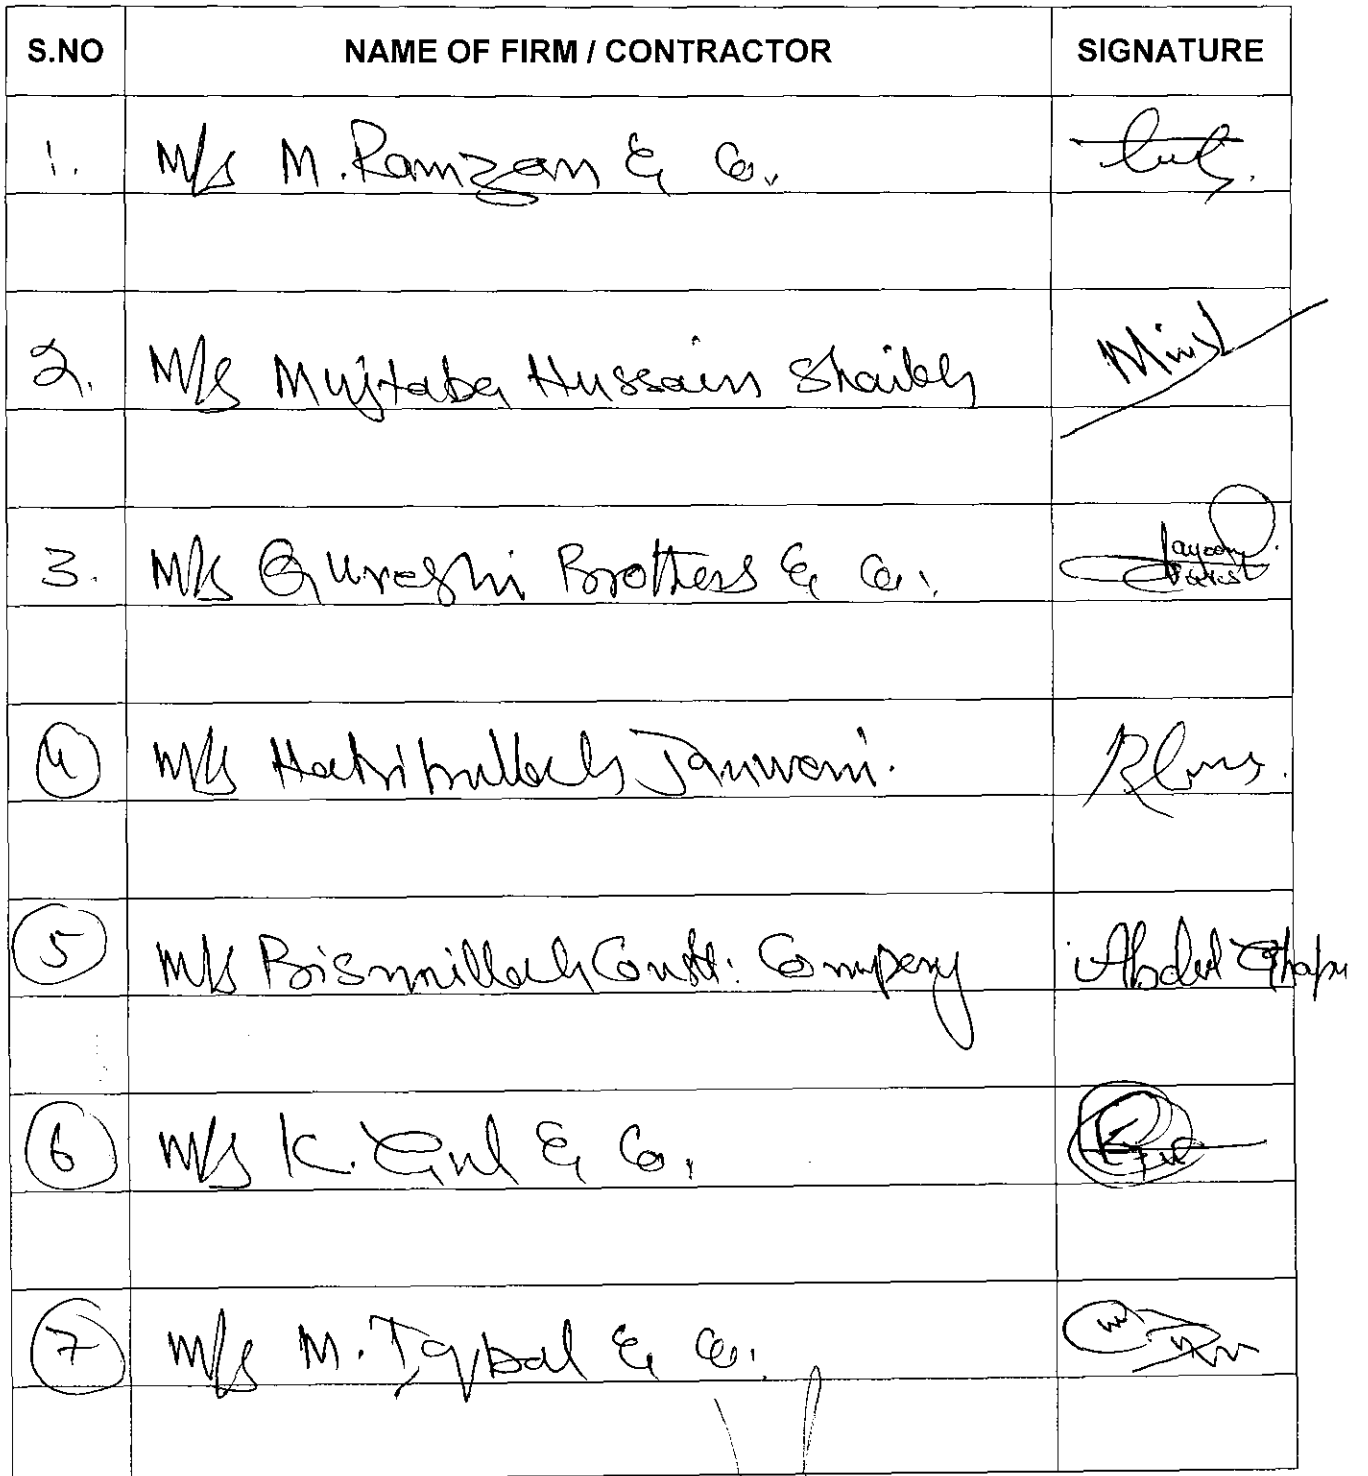 S.NO NAME OF FIRM / CONTRACTOR SIGNATURE
1. M/s M. Ramzan & Co.
2. M/s Mujtaba Hussain Shaikh
3. M/s Qureshi Brothers & Co.
4 M/s Habibullah Janwari.
5 M/s Bismillah Constt: Company Abdul
6 M/s K. Gul & Co.
7 M/s M. Iqbal & Co.